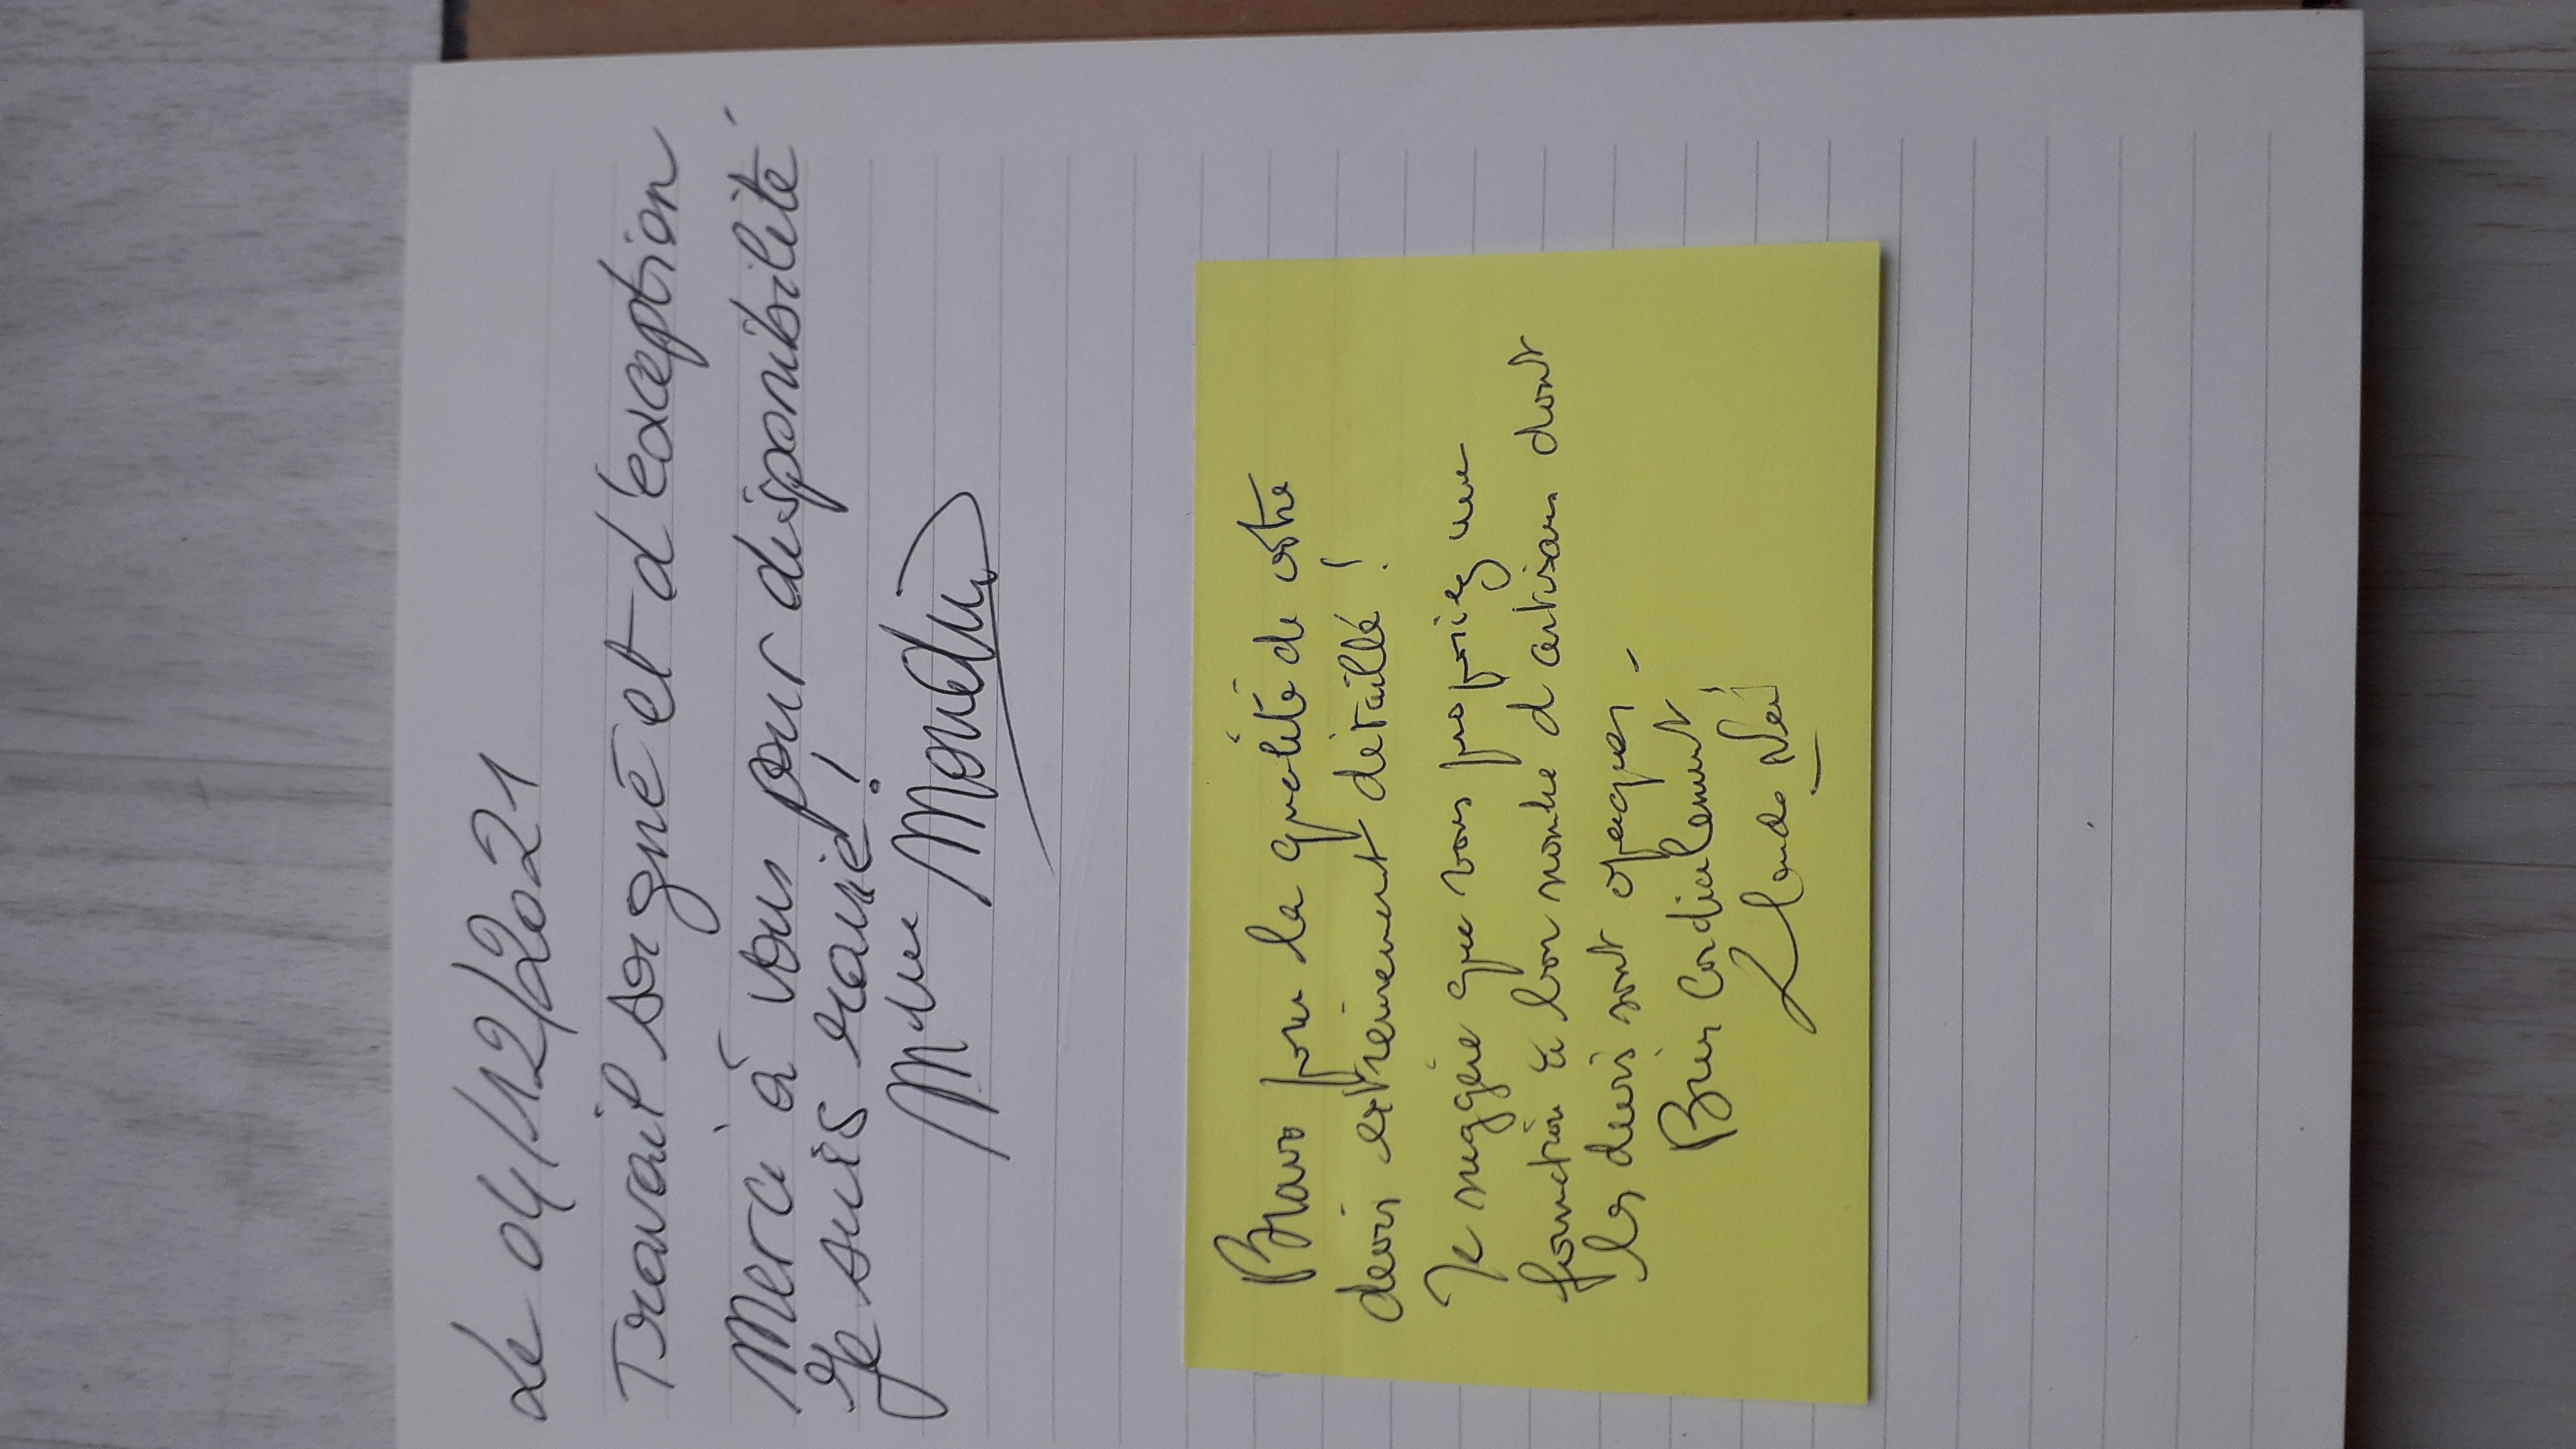 Le 04/12/2021
Travail soigné et d'exception
Merci à vous pour disponibilité
Je suis ravie !
Mlle
Bravo pour la qualité de votre
devis extrêmement détaillé !
Je suggère que vous proposiez une
formation à bon nombre d'artisans dont
les devis sont opaques.
Bien cordialement,
Claude